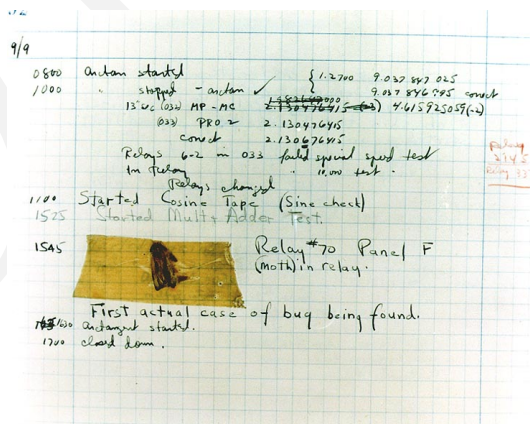 9/9
0800 arctan started
1000 " stopped - arctan ✓ { 1.2700 9.037 847 025
9.037 846 995 correct
13"uc (033) MP - MC 2.130476415 (-3) 4.615925059(-2)
(033) PRO 2 2.130476415
correct 2.130676415
Relays 6-2 in 033 failed special speed test
in relay " 10,000 test.
Relays changed
1100 Started Cosine Tape (Sine check)
1525 Started Mult + Adder Test.
1545 Relay #70 Panel F
(moth) in relay.
First actual case of bug being found.
1630 arctangent started.
1700 closed down.
Relay
2145
Relay 33